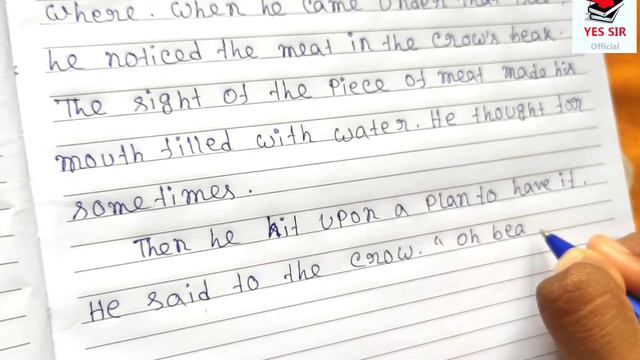 where. When he came under that
he noticed the meat in the crow's beak.
The sight of the piece of meat made his
mouth filled with water. He thought for
sometimes.
Then he hit upon a plan to have it.
He said to the crow. " oh bea
YES SIR
Official